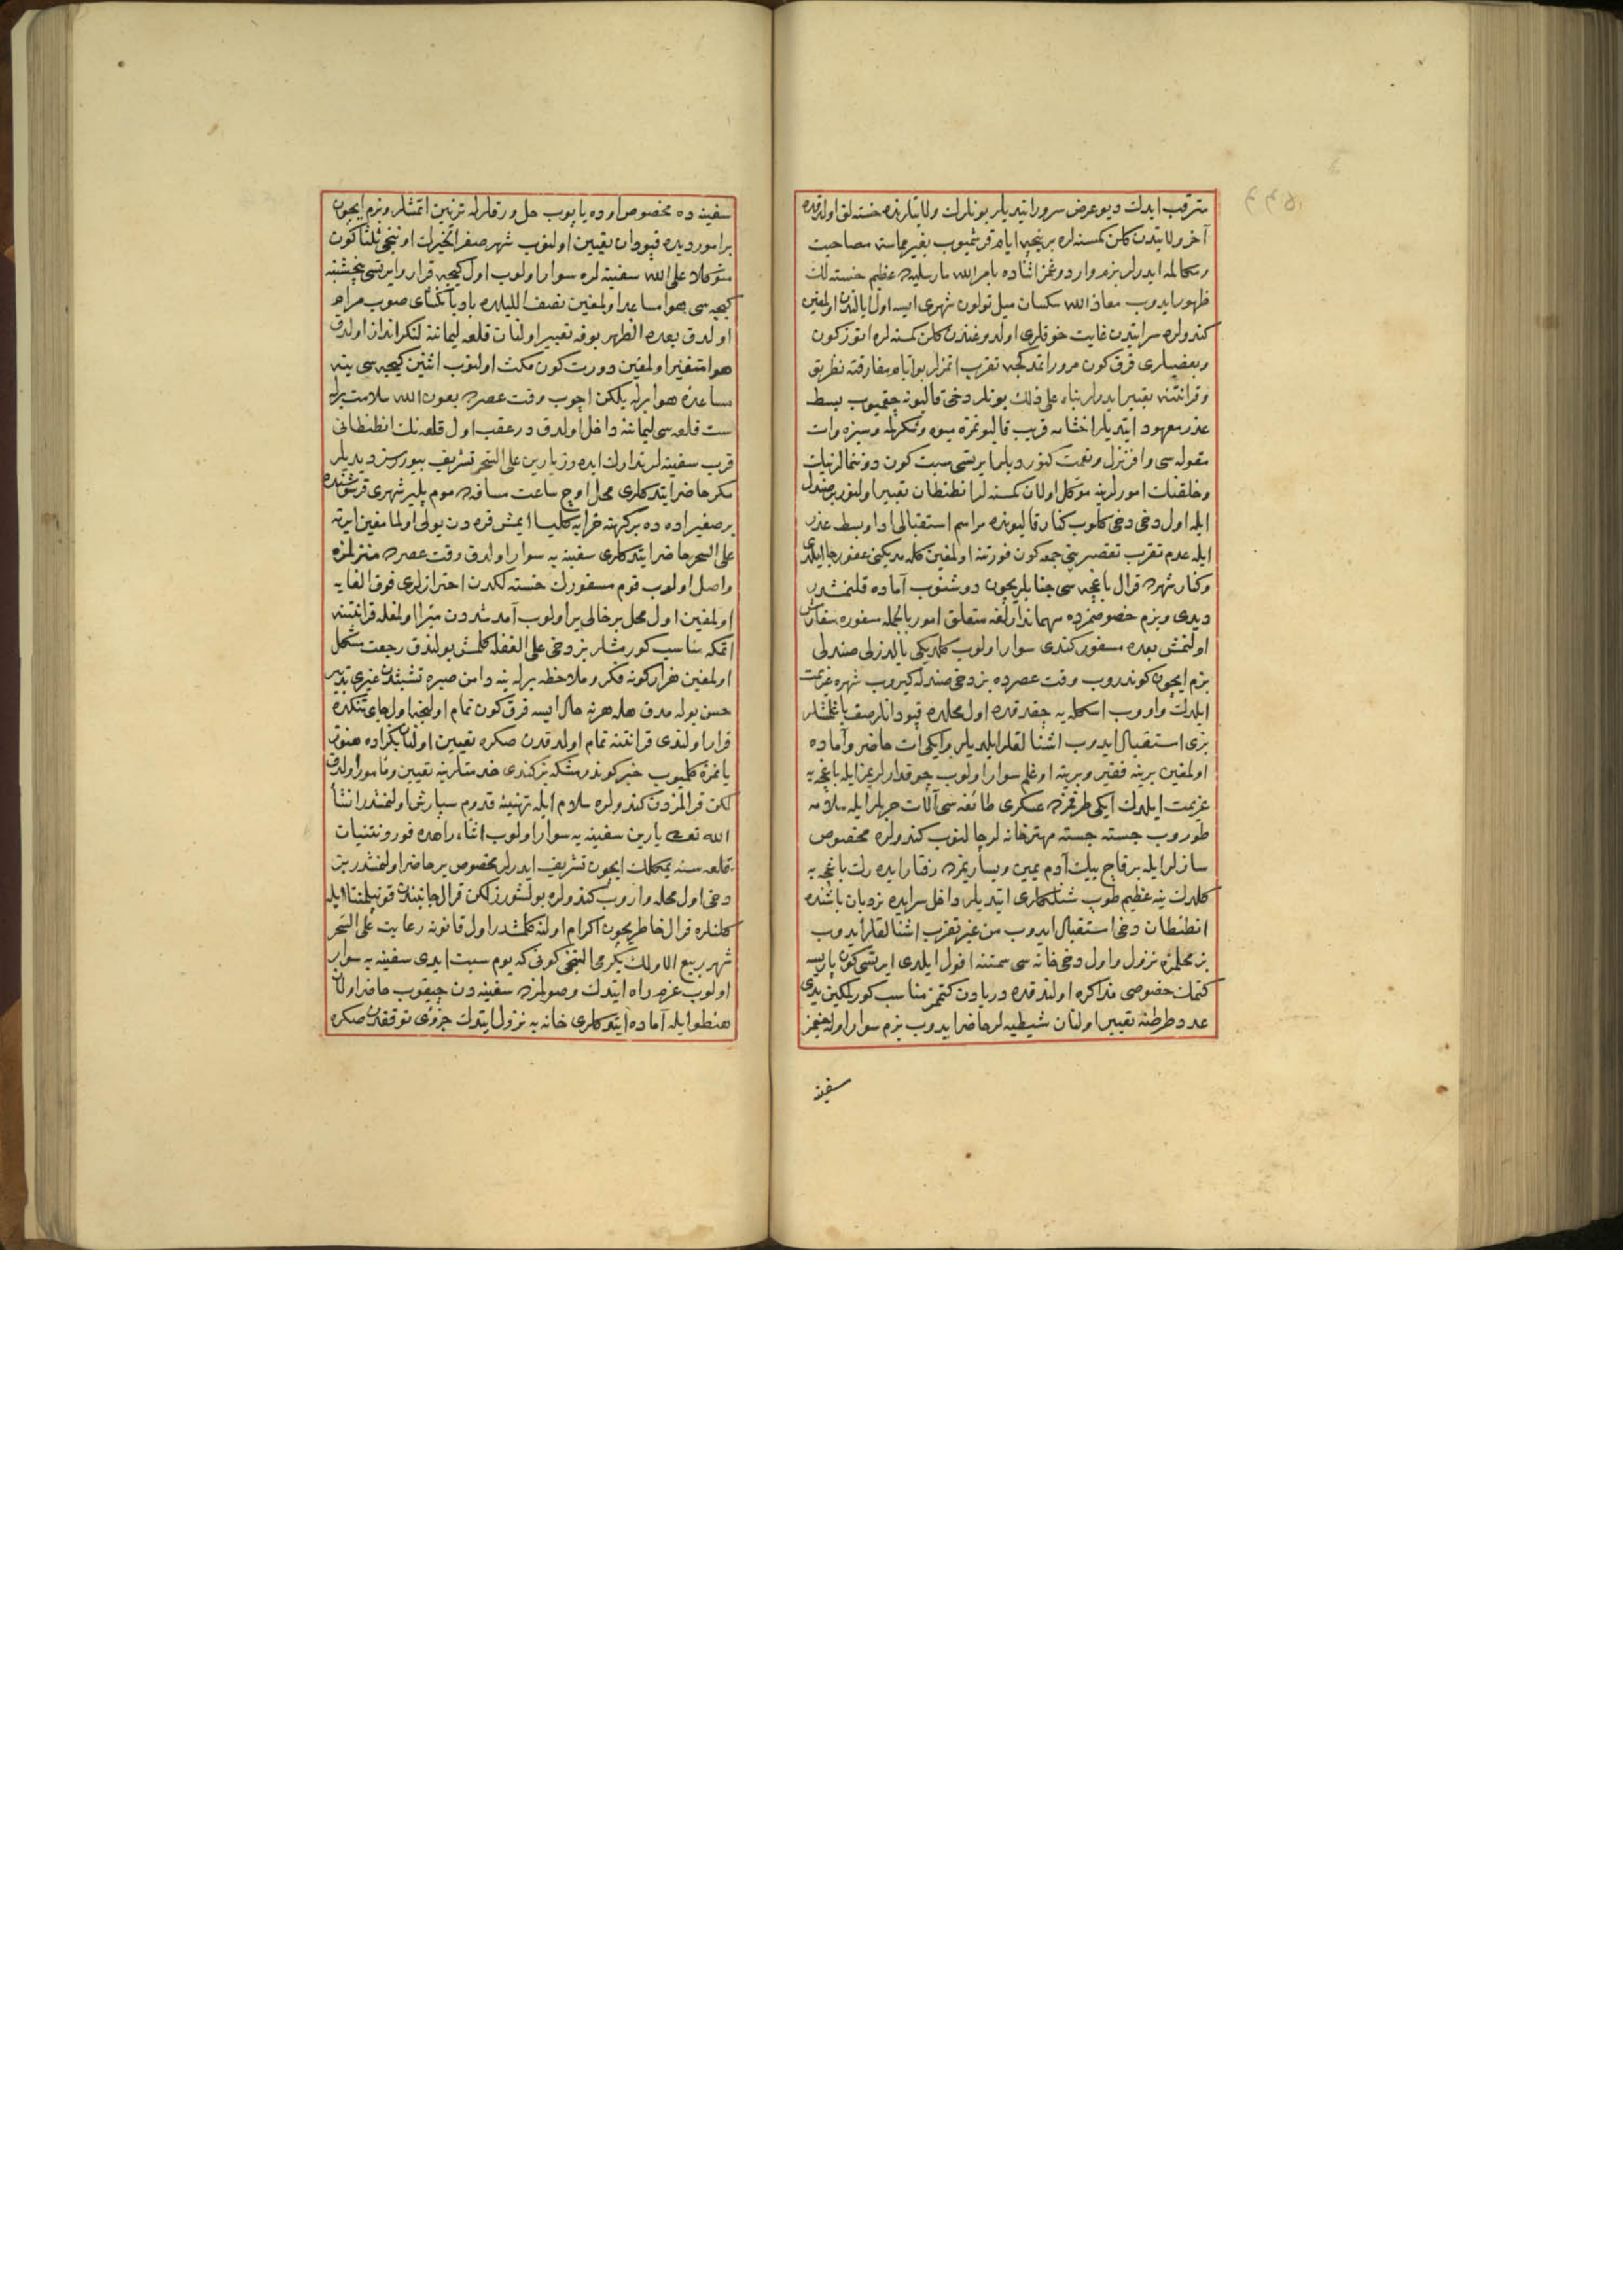 مترقب ایدك دیو عرض سرور ایتدیلر بونلرك ولایتلرنده خسته لق اولدقده
آخر ولایتدن کلن کمسنه لره بر نیجه ایام قرشمیوب بغیر مماسه مصاحبت
ومکالمه ایدرلر بزم واردوغمز اثناده بامر الله مارسلیه ده عظیم خسته لك
ظهور ایدوب معاذ الله سکسان میل تولون شهری ایسه اول ایالتدن اولمغین
کندولره سرایتدن غایت خوفلری اولدوغندن کلن کمسنه لره اوتوز کون
وبعضیلری قرق کون مرور ایتمدکجه تقرب ایتمزلر بو ایام مفارقته نظریق
وقرانتنه تعبیر ایدرلر بناء علی ذلك بونلر دخی قالیونه چقمیوب بسط
عذر معهود ایتدیلر اخشامه قریب قالیونمزه میوه وشکرلمه وسبزه وات
مقوله سی وافر نزل ونعمت کتوردیلر ایرتسی سبت کون دوننمالرینك
وخلقنك امورلرینه موکل اولان کمسنه لر انطنطان تعبیر اولنور بر صندل
ایله اول دخی دخی کلوب کنار قالیونده مراسم استقبالی ادا وبسط عذر
ایله عدم تقرب تقصیرینی جمعه کون فورتنه اولمغین کلمدیکنی عفو رجا ایلدی
وکنار شهرده قرال باغچه سی جنابلریچون دوشنوب آماده قلنمشدر
دیدی وبزم خصوصمزده مهماندارلغه متعلق امور بالجمله مسفوره سفارش
اولنمش بعده مسفور کندی سوار اولوب کلدیکی یالدزلی صندلی
بزم ایچون کوندروب وقت عصرده بز دخی صندله کیروب شهره عزیمت
ایلدك واروب اسکله یه چقدقده اول محلده قپودانلر صف باغلمشلر
بزی استقبال ایدوب اشنالقلر ایلدیلر وایکی ات حاضر وآماده
اولمغین برینه فقیر وبرینه اوغلم سوار اولوب چوقدارلریمز ایله باغچه یه
عزیمت ایلدك ایکی طرفمزده عسکری طائفه سی آلات حربلر ایله سلامه
طوروب جسته جسته مهترخانه لر چالنوب کندولره مخصوص
سازلر ایله بر قاچ بیك آدم یمین ویساریمزده رفتار ایده رك باغچه یه
کلدك ینه عظیم طوپ شنلکلری ایتدیلر داخل سرایده نردبان باشنده
انطنطان دخی استقبال ایدوب من غیر تقرب اشنالقلر ایدوب
بز محلمزه نزول واول دخی خانه سی سمتنه افول ایلدی ایرتسی کون پاریسه
کتمك خصوصی مذاکره اولندقده دریادن کتمز مناسب کورلمکین یدی
عدد طرطنه تعبیر اولنان شیطیه لر حاضر ایدوب بزم سوار اوله جغمز
سفینه
سفینه ده مخصوص اوده یاپوب حل ورقلرله تزیین ایتمشلر وبزم ایچون
بر اموردیده قپودان تعیین اولنوب شهر صفر الخیرك اوننجی ثلثا کون
متوکلا علی الله سفینه لره سوار اولوب اول کیجه قرار وایرتسی پنجشنبه
کیجه سی هوا مساعد اولمغین نصف اللیلده بادبانکشای صوب مرام
اولدق بعده الظهر بوقه تعبیر اولنان قلعه لیماننه لنکرانداز اولدق
هوا متغیر اولمغین دورت کون مکث اولنوب اثنین کیجه سی ینه
مساعده هوا برله یلکن اچوب وقت عصرده بعون الله سلامت برله
ست قلعه سی لیماننه داخل اولدق درعقب اول قلعه نك انطنطانی
قرب سفینه لر تدارك ایده رز یارین علی السحر تشریف بیورسز دیدیلر
مکر حاضر ایتدکلری محل اوچ ساعت مسافه ده موم پلیر شهری قرشوسنده
بر صغیر اده ده بر کهنه خرابه کلیسا ایمش قره دن یولی اولمامغین ایرته
علی السحر حاضر ایتدکلری سفینه یه سوار اولدق وقت عصرده منزلمزه
واصل اولوب قوم مسفورك خسته لکدن احترازلری فوق الغایه
اولمغین اول محل بر خالی یر اولوب آمد شددن مبرا اولمغله قرانتنه
اتمکه مناسب کورمشلر بز دخی علی الغفله کلمش بولندق رجعت مشکل
اولمغین هزار کونه فکر وملاحظه برله ینه دامن صبره تشبثدن غیری تدبیر
حسن بولمدق هله هر نه حال ایسه قرق کون تمام اولنجه اول جای تنکده
قرار اولندی قرانتنه تمام اولدقدن صکره تعیین اولنان بکزاده هنوز
یانمزه کلمیوب خبر کوندرمشکه بز کندی خدمتلرینه تعیین ومأمور اولدق
لکن قرالمزدن کندولره سلام ایله تهنیئه قدوم سپارش اولنمشدر انشا
الله تعالی یارین سفینه یه سوار اولوب اثناء راهده فورونتنیان
قلعه سنه یمکلك ایچون تشریف ایدرلر مخصوص یر حاضر اولنمشدر بز
دخی اول محله واروب کندولره بولشورز لکن قرال جانبندن قونپلمنتا ایله
کلنلره قرال خاطریچون اکرام اولنه کلمشدر اول قانونه رعایت علی السحر
شهر ربیع الاولك یکرمی التنجی کونی که یوم سبت ایدی سفینه یه سوار
اولوب عزم راه ایتدك وصولمزده سفینه دن چیقوب حاضر اولان
هنطو ایله آماده ایتدکلری خانه یه نزول ایتدك جزئی توقفدن صکره